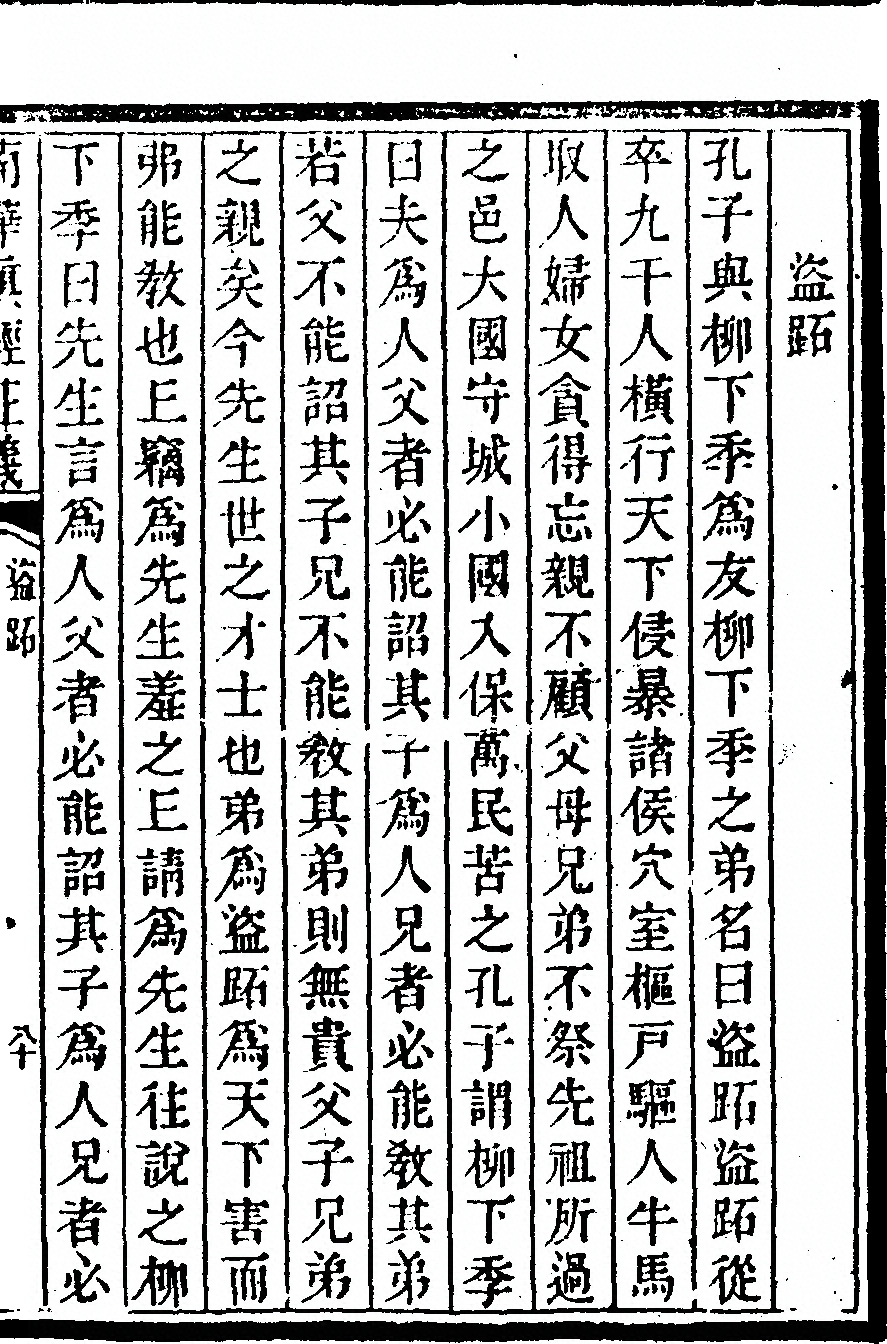 盜跖
孔子與柳下季爲友柳下季之弟名曰盜跖盜跖從
卒九千人橫行天下侵暴諸侯穴室樞戸驅人牛馬
取人婦女貪得忘親不顧父母兄弟不祭先祖所過
之邑大國守城小國入保萬民苦之孔子謂柳下季
曰夫爲人父者必能詔其子爲人兄者必能敎其弟
若父不能詔其子兄不能敎其弟則無貴父子兄弟
之親矣今先生世之才士也弟爲盜跖爲天下害而
弗能敎也丘竊爲先生羞之丘請爲先生往說之柳
下季曰先生言爲人父者必能詔其子爲人兄者必
南華眞經正義 盜跖 八十